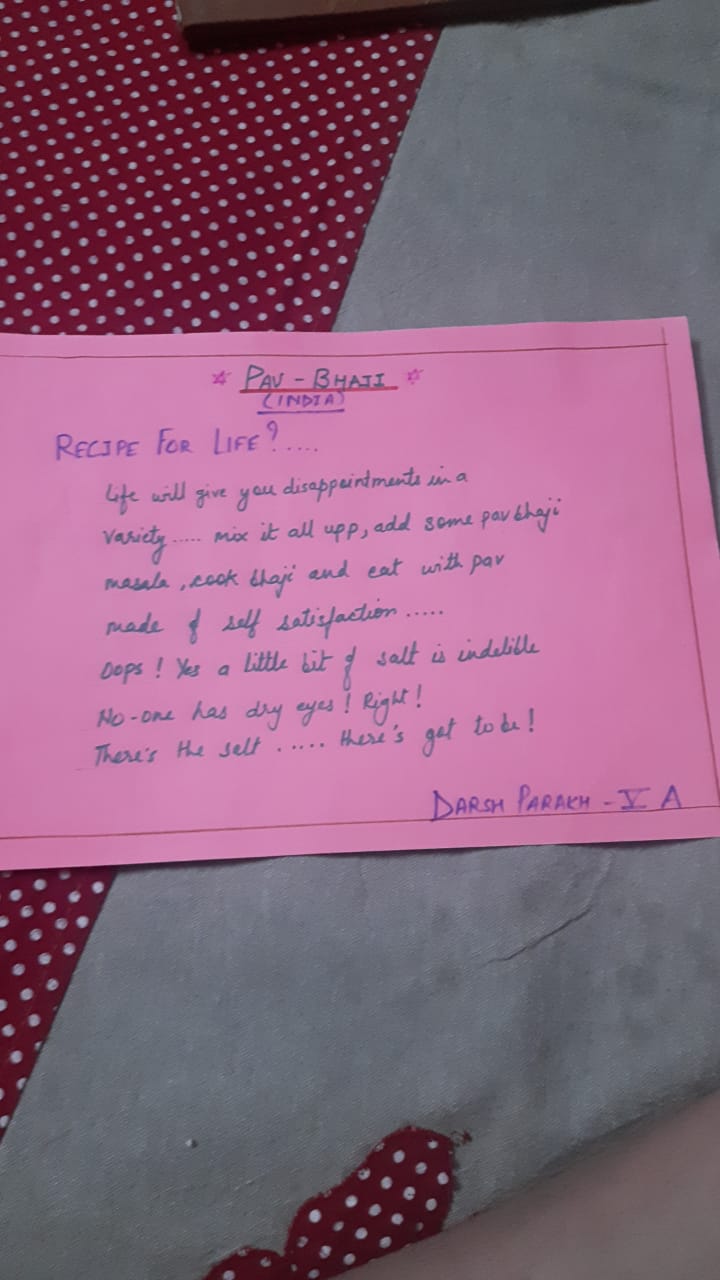 ☆ PAV - BHAJI ☆
(INDIA)
RECIPE FOR LIFE?....
Life will give you disappointments in a
variety..... mix it all upp, add some pav bhaji
masala, cook bhaji and eat with pav
made of self satisfaction.....
Oops! Yes a little bit of salt is indelible
No-one has dry eyes! Right!
There's the salt ..... there's got to be!
DARSH PARAKH - V A